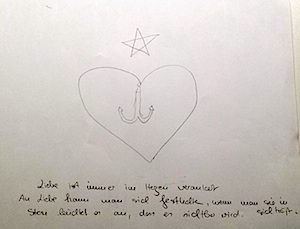 Liebe ist immer im Herzen verankert
An Liebe kann man sich festhalten, wenn man sie in
Stern leuchtet es an, dort es sichtbar wird.